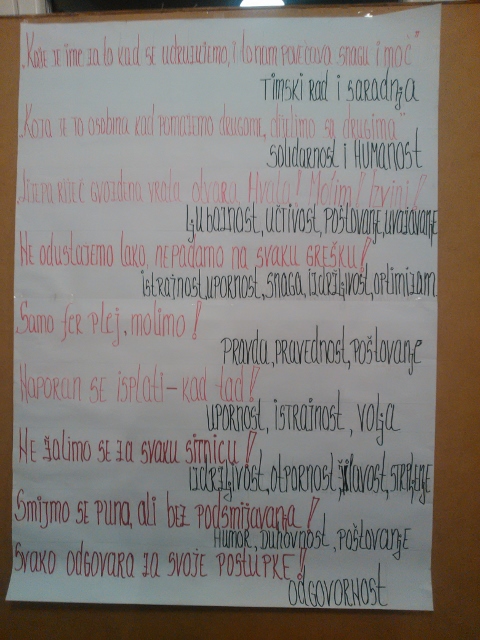 „Koje je ime za to kad se udružujemo, i to nam povećava snagu i moć"
Timski rad i saradnja
„Koja je to osobina kad pomažemo drugome, dijelimo sa drugima"
Solidarnost i HUMANOST
Lijepa riječ gvozdena vrata otvara. Hvala! Molim! Izvini!
Ljubaznost, učtivost, poštovanje, uvažavanje
Ne odustajemo lako, ne padamo na svaku grešku!
istrajnost, upornost, snaga, izdržljivost, optimizam
Samo fer plej, molimo!
Pravda, pravednost, poštovanje
Naporan se isplati – kad tad!
upornost, istrajnost, volja
Ne žalimo se za svaku sitnicu!
izdržljivost, otpornost, žilavost, strpljenje
Smijmo se puna, ali bez podsmijavanja!
Humor, duhovnost, poštovanje
Svako odgovara za svoje postupke!
odgovornost